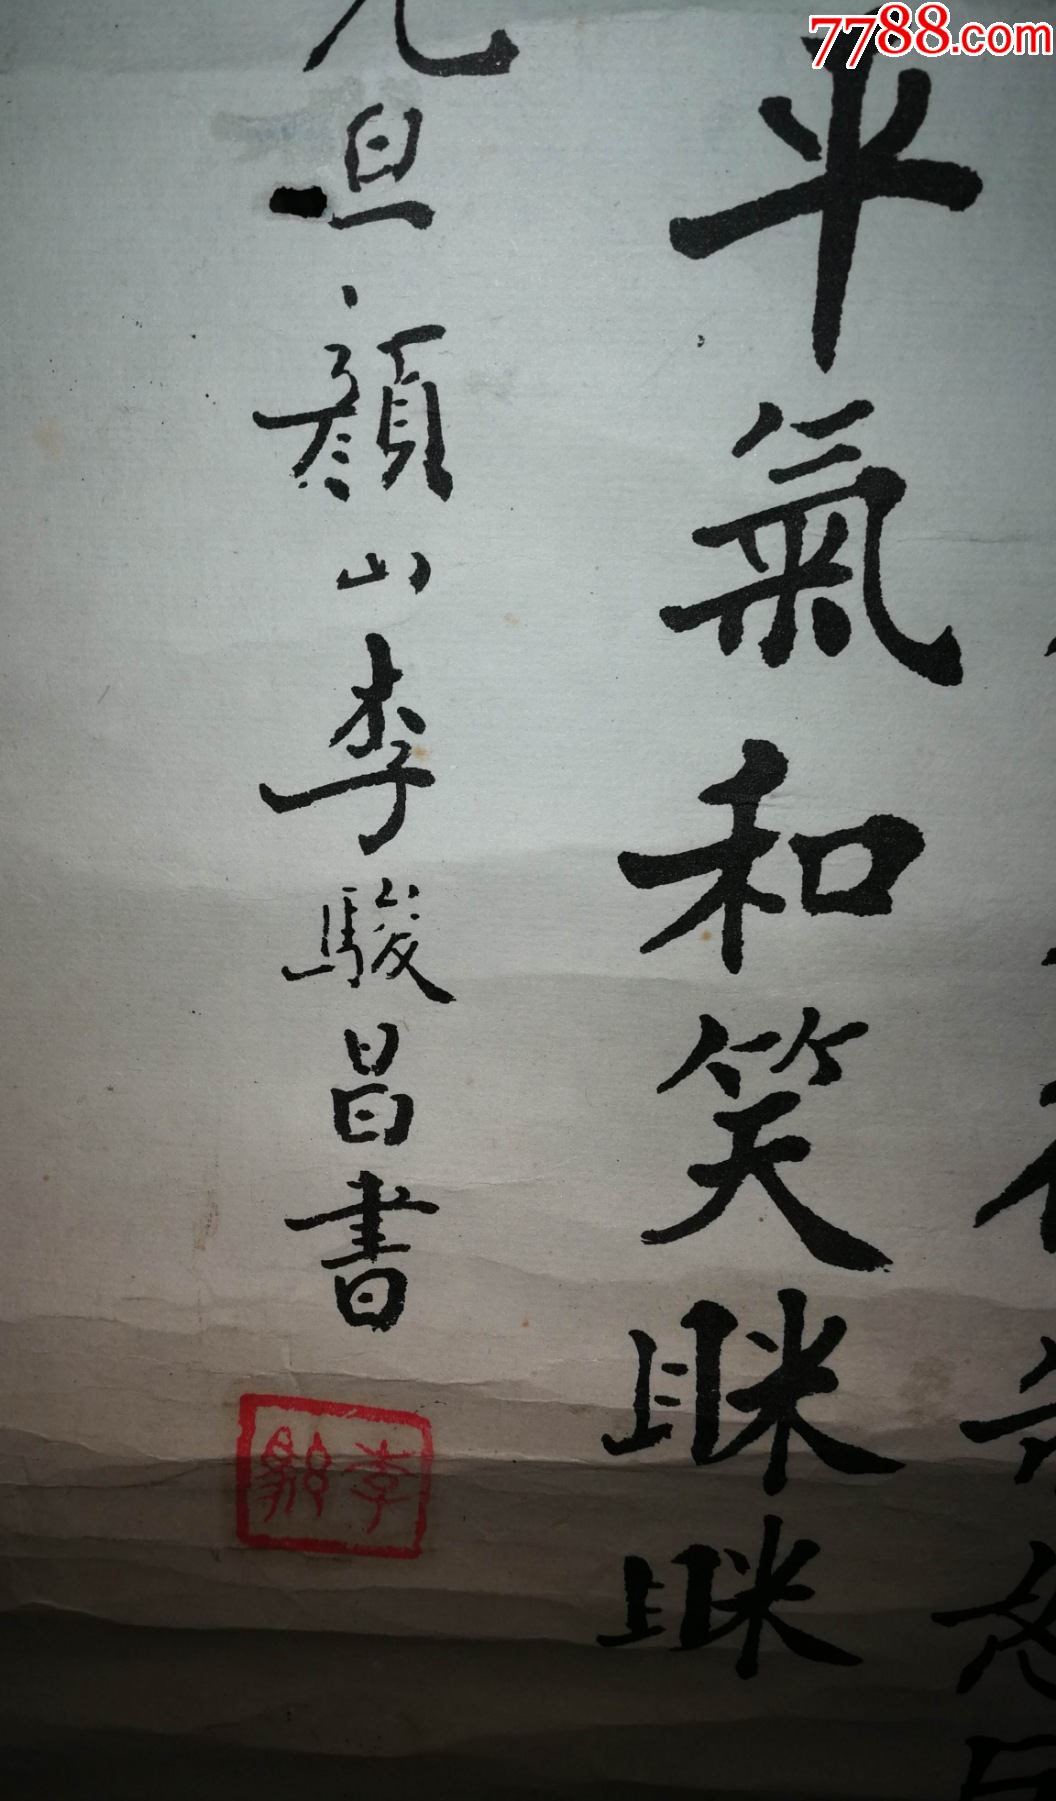 7788.com
平氣和笑眯眯
元旦顏山李駿昌書
李毅